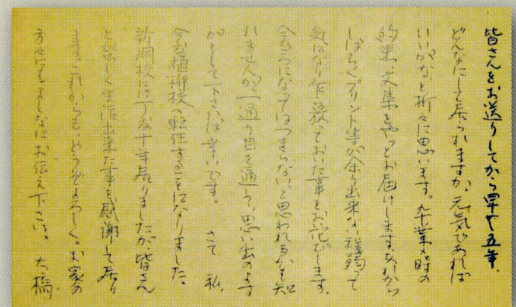 皆さんをお送りしてから早や十五年、
どんなにして居られますか、元気であれば
いいがなと折々に思います。卒業の時の
約束、文集をやっとお届けします。あれから
しばらくプリント等が余り出来ない程弱って
気になり乍ら放っておいた事をおわびします。
今ごろになってはつまらないと思われるかも知
れませんが、一通り目を通して、思い出のよす
がとして下されば幸いです。 さて、私、
今度植柳校へ転任することになりました。
新洞校に丁度十年居りましたが、皆さん
と楽しく生活出来た事を感謝して居り
ます。これからもどうぞよろしく。お家の
方々にもよしなにお伝え下さい。 大橋